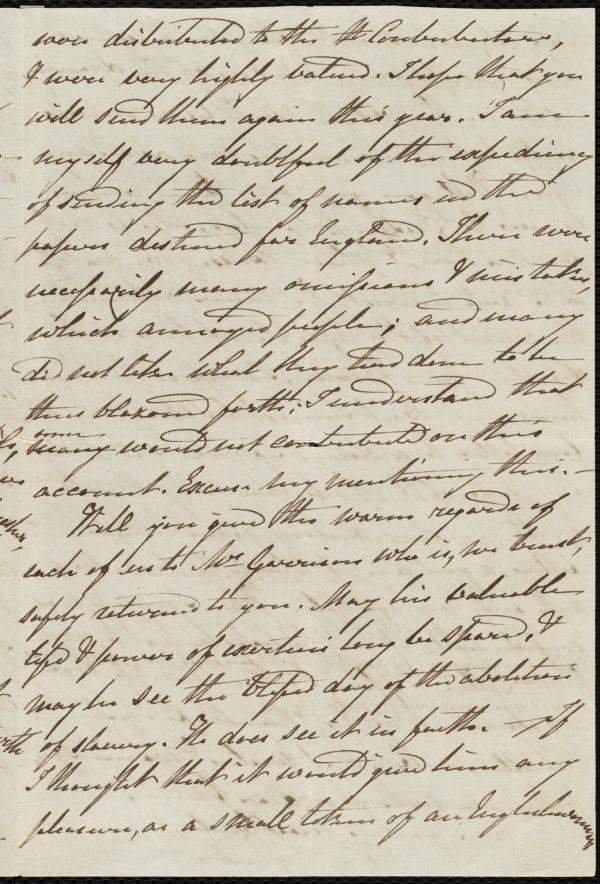 were distributed to the Contributors,
& were very highly valued. I hope that you
will send them again this year. I am
myself very doubtful of the expediency
of sending the list of names in the
papers destined for England. There were
necessarily many omissions & mistakes,
which annoyed people; and many
did not like what they had done to be
thus blazoned forth; I understand that
some
many would not contribute on this
account. Excuse my mentioning this.—
Will you give the warm regards of
each of us to Mr Garrison who is, we trust,
safely returned to you. May his valuable
life & power of exertion long be spared, &
may he see the blessed day of the abolition
of slavery. He does see it in faith. — If
I thought that it would give him any
pleasure, as a small token of an Englishwoman's